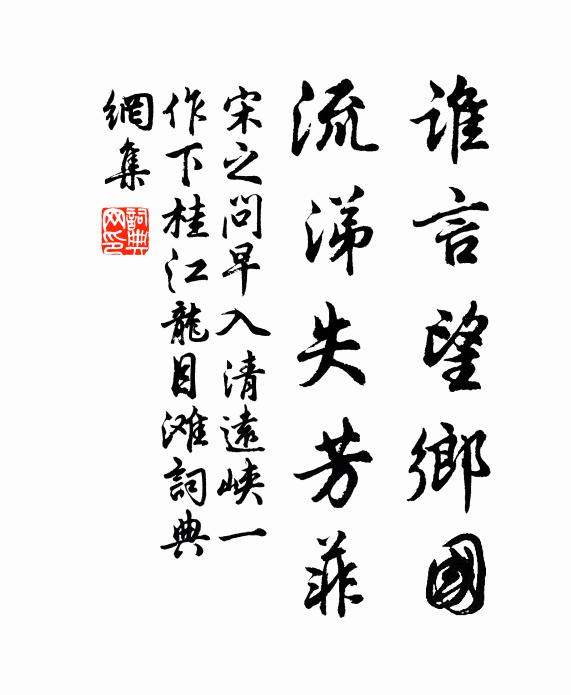 谁言望鄉國
流涕失芳菲
宋之问早入清遠峽一
作下桂江龍目滩詞典
網集
詞典
网印